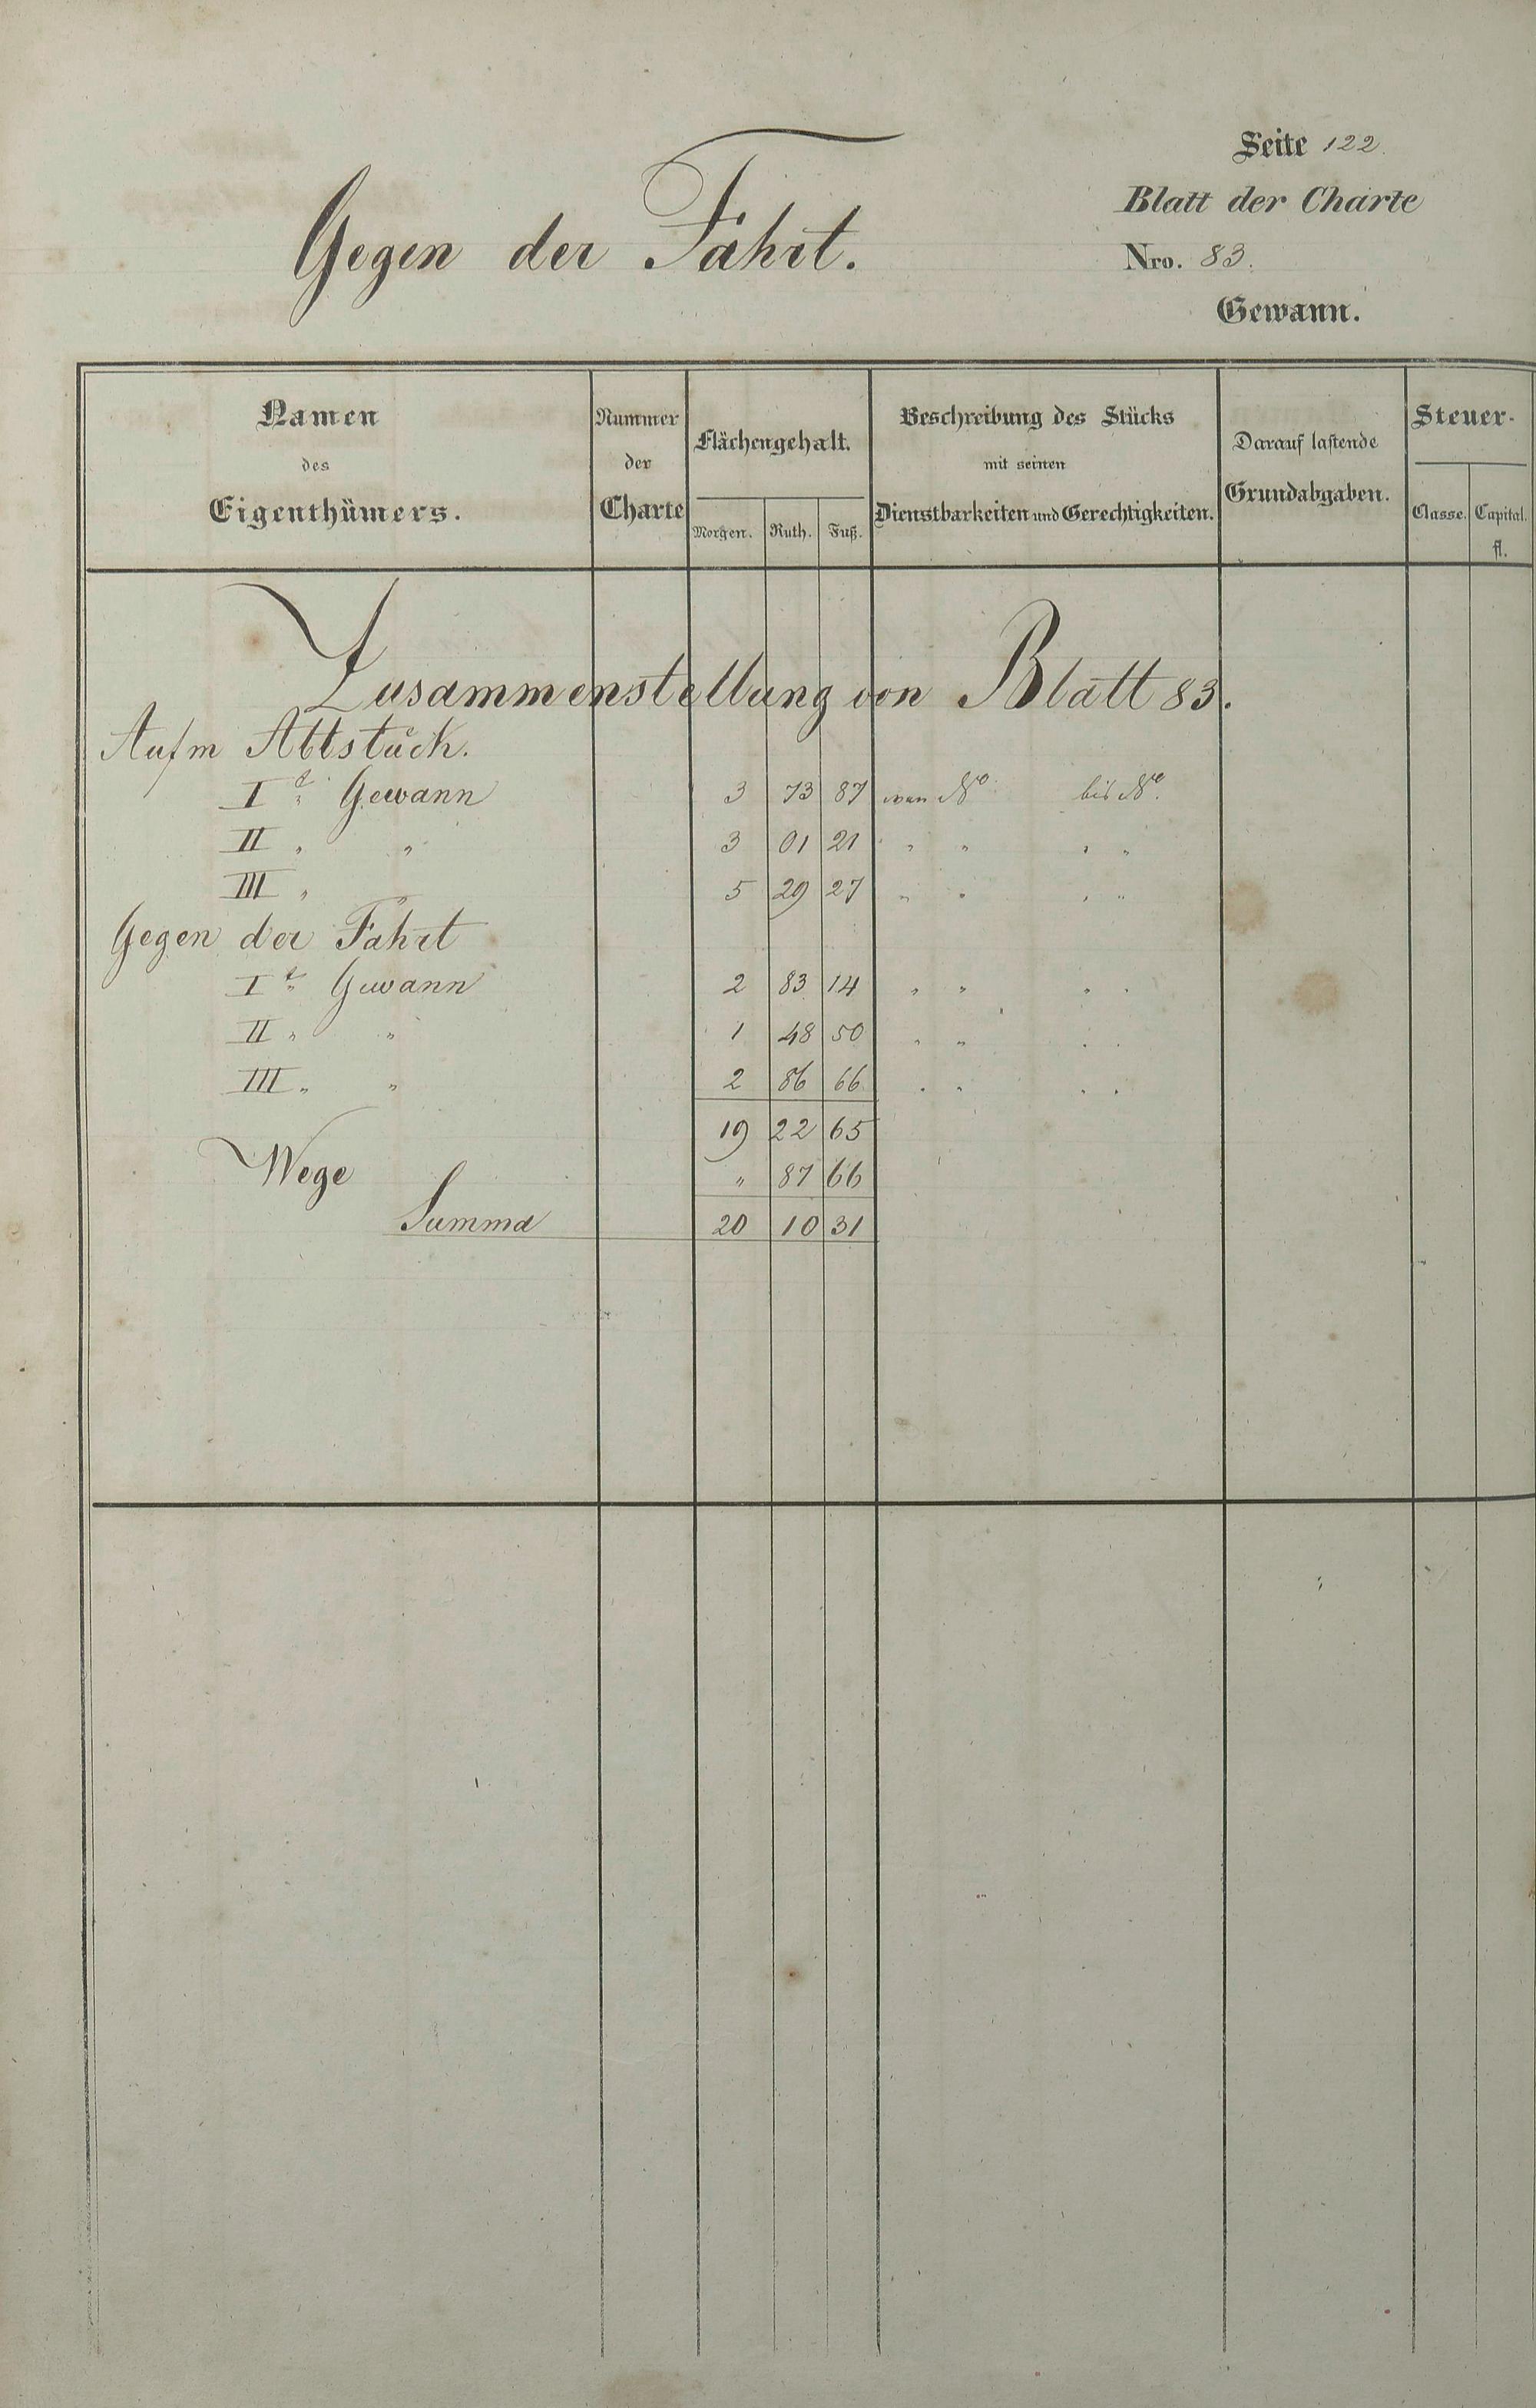 Seite 122.
Gegen der Fahrt.
Blatt der Charte
Nro. 83.
Gewann.
Namen des Eigenthümers.
Nummer der Charte
Flächengehalt.
Morgen. Ruth. Fuß.
Beschreibung des Stücks mit seinen Dienstbarkeiten und Gerechtigkeiten.
Darauf lastende Grundabgaben.
Steuer-
Classe. Capital. fl.
Zusammenstellung von Blatt 83.
Aufm Attstück.
Iᵗ Gewann 3 73 87 von Nº bis Nº.
II " " 3 01 21 " " " "
III " " 5 29 27 " " " "
Gegen der Fahrt
Iᵗ Gewann 2 83 14 " " " "
II " " 1 48 50 " " " "
III " " 2 86 66 " " " "
19 22 65
Wege " 87 66
Summa 20 10 31